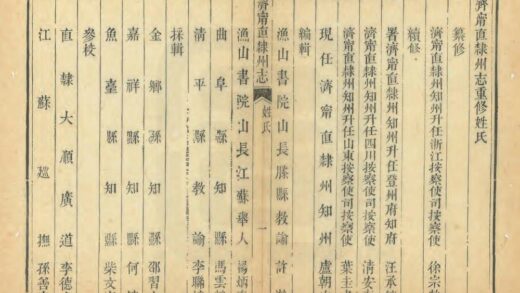 濟甯直隸州志重修姓氏
纂修
濟甯直隸州知州升任浙江按察使司按察使 徐宗
續修
署濟甯直隸州知州升任登州府知府 汪承
濟甯直隸州知州升任四川按察使司按察使 清安
濟甯直隸州知州升任山東按察使司按察使 葉圭
現任濟甯直隸州知州 盧朝
編輯
漁山書院山長滕縣教諭 許
濟甯直隸州志 姓氏 一
漁山書院山長江蘇舉人 楊炳
曲阜縣知縣 馬雲
清平縣教諭 李聯
採輯
金鄉縣知縣 邵習
嘉祥縣知縣 何
魚臺縣知縣 柴文
參校
直隸大順廣道 李德
江蘇巡撫 孫善